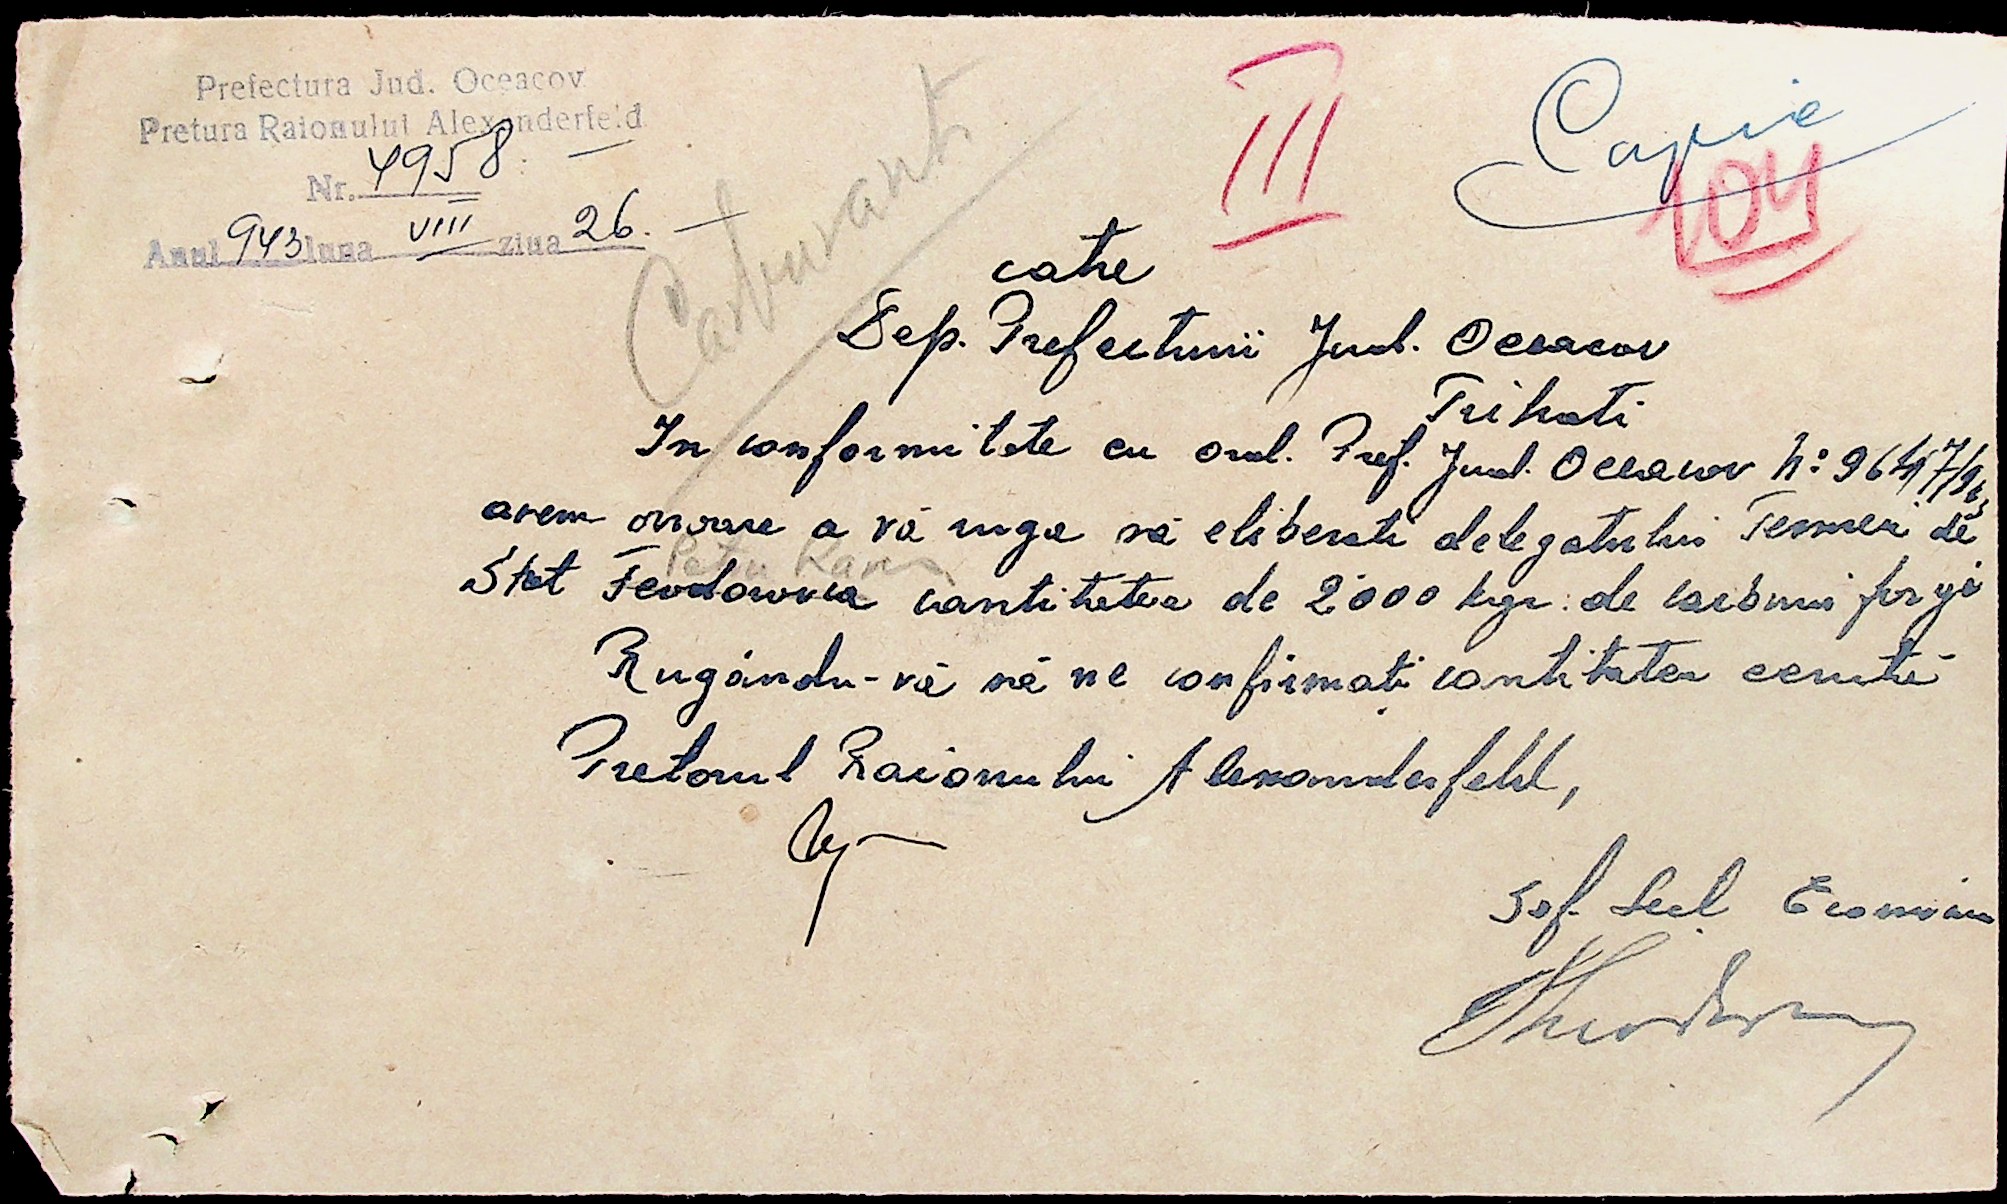 Prefectura Jud. Oceacov
Pretura Raionului Alexanderfeld
Nr. 4958.
Anul 943 luna VIII ziua 26.
Carburanti
III
Copie
104
catre
Dep. Prefecturii Jud. Oceacov
Trihati
In conformitate cu ord. Pref. Jud. Oceacov No 9647/943
avem onoare a vă ruga să eliberati delegatului Fermei de
Petru
Stat Feodorovca cantitatea de 2000 kgr. de carbuni forjă
Rugându-vă să ne confirmati cantitatea cerută
Pretorul Raionului Alexanderfeld,
Sef. Secl Econom